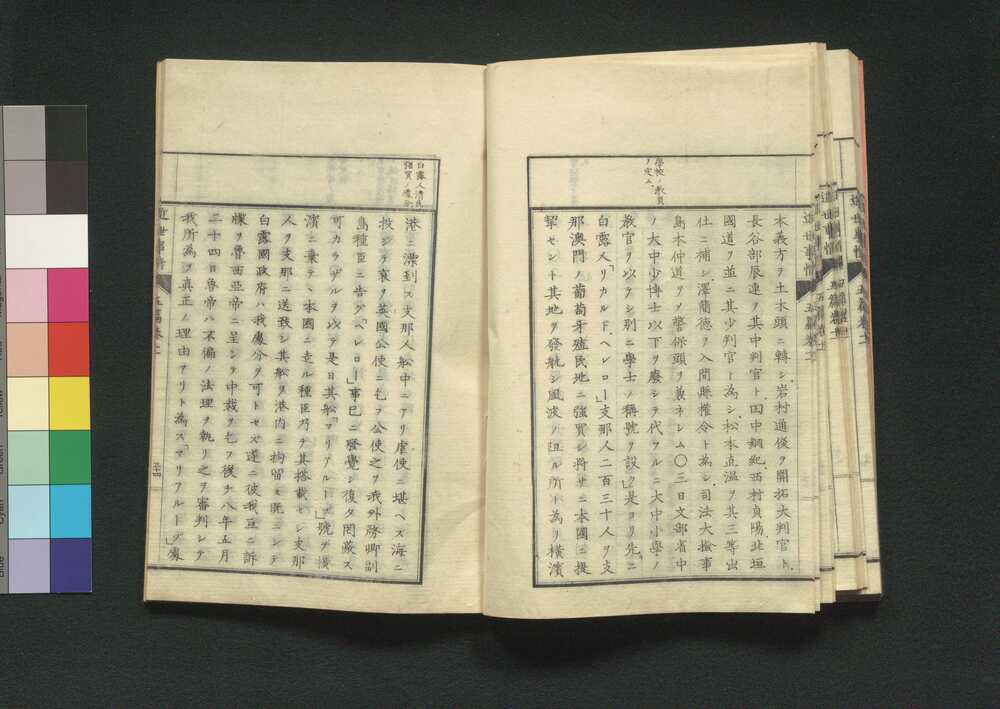 學校ノ教員
ヲ定ム
本義方ヲ土木頭ニ轉シ岩村通俊ヲ開拓大判官ト
長谷部辰連ヲ其中判官ト田中綱紀西村貞陽北垣
國道ヲ並ニ其少判官ト為シ松本直温ヲ其三等出
仕ニ補シ澤簡德ヲ入間縣權令ト為シ司法大檢事
島本仲道ヲノ警保頭ヲ兼ネシム〇三日文部省中
ノ大中少博士以下ヲ廢シテ代フルニ大中小學ノ
教官ヲ以テシ別ニ學士ノ稱號ヲ設ク是ヨリ先ニ
白露人「リカルド、ヘレロー」支那人二百三十人ヲ支
那澳門ノ葡萄牙殖民地ニ強買シ將サニ本國ニ提
挈セントシ其地ヲ發航シ風波ノ阻ル所ト為リ橫濱
白露人清民
強買ノ處分
港ニ漂到ス支那人船中ニアリ虐使ニ堪ヘス海ニ
投シテ哀ヲ英國公使ニ乞フ公使之ヲ我外務卿副
島種臣ニ告ク「ヘレロー」事已ニ發覺シ復タ罔蔽ス
可カラサルヲ以テ是日其船「マリアルーヅ」號ヲ橫
濱ニ棄テヽ本國ニ走ル種臣乃チ其搭載セシ支那
人ヲ支那ニ送致シ其船ヲ港內ニ拘留ス既ニシテ
白露國政府ハ我處分ヲ可トセス遂ニ彼我互ニ訴
牒ヲ魯西亞帝ニ呈シテ中裁ヲ乞フ後チ八年五月
二十四日魯帝ハ不偏ノ法理ヲ執リ之ヲ審判シテ
我所為ヲ真正ノ理由アリト為ス「マリフルーヅ」處
近世事情
五篇卷二